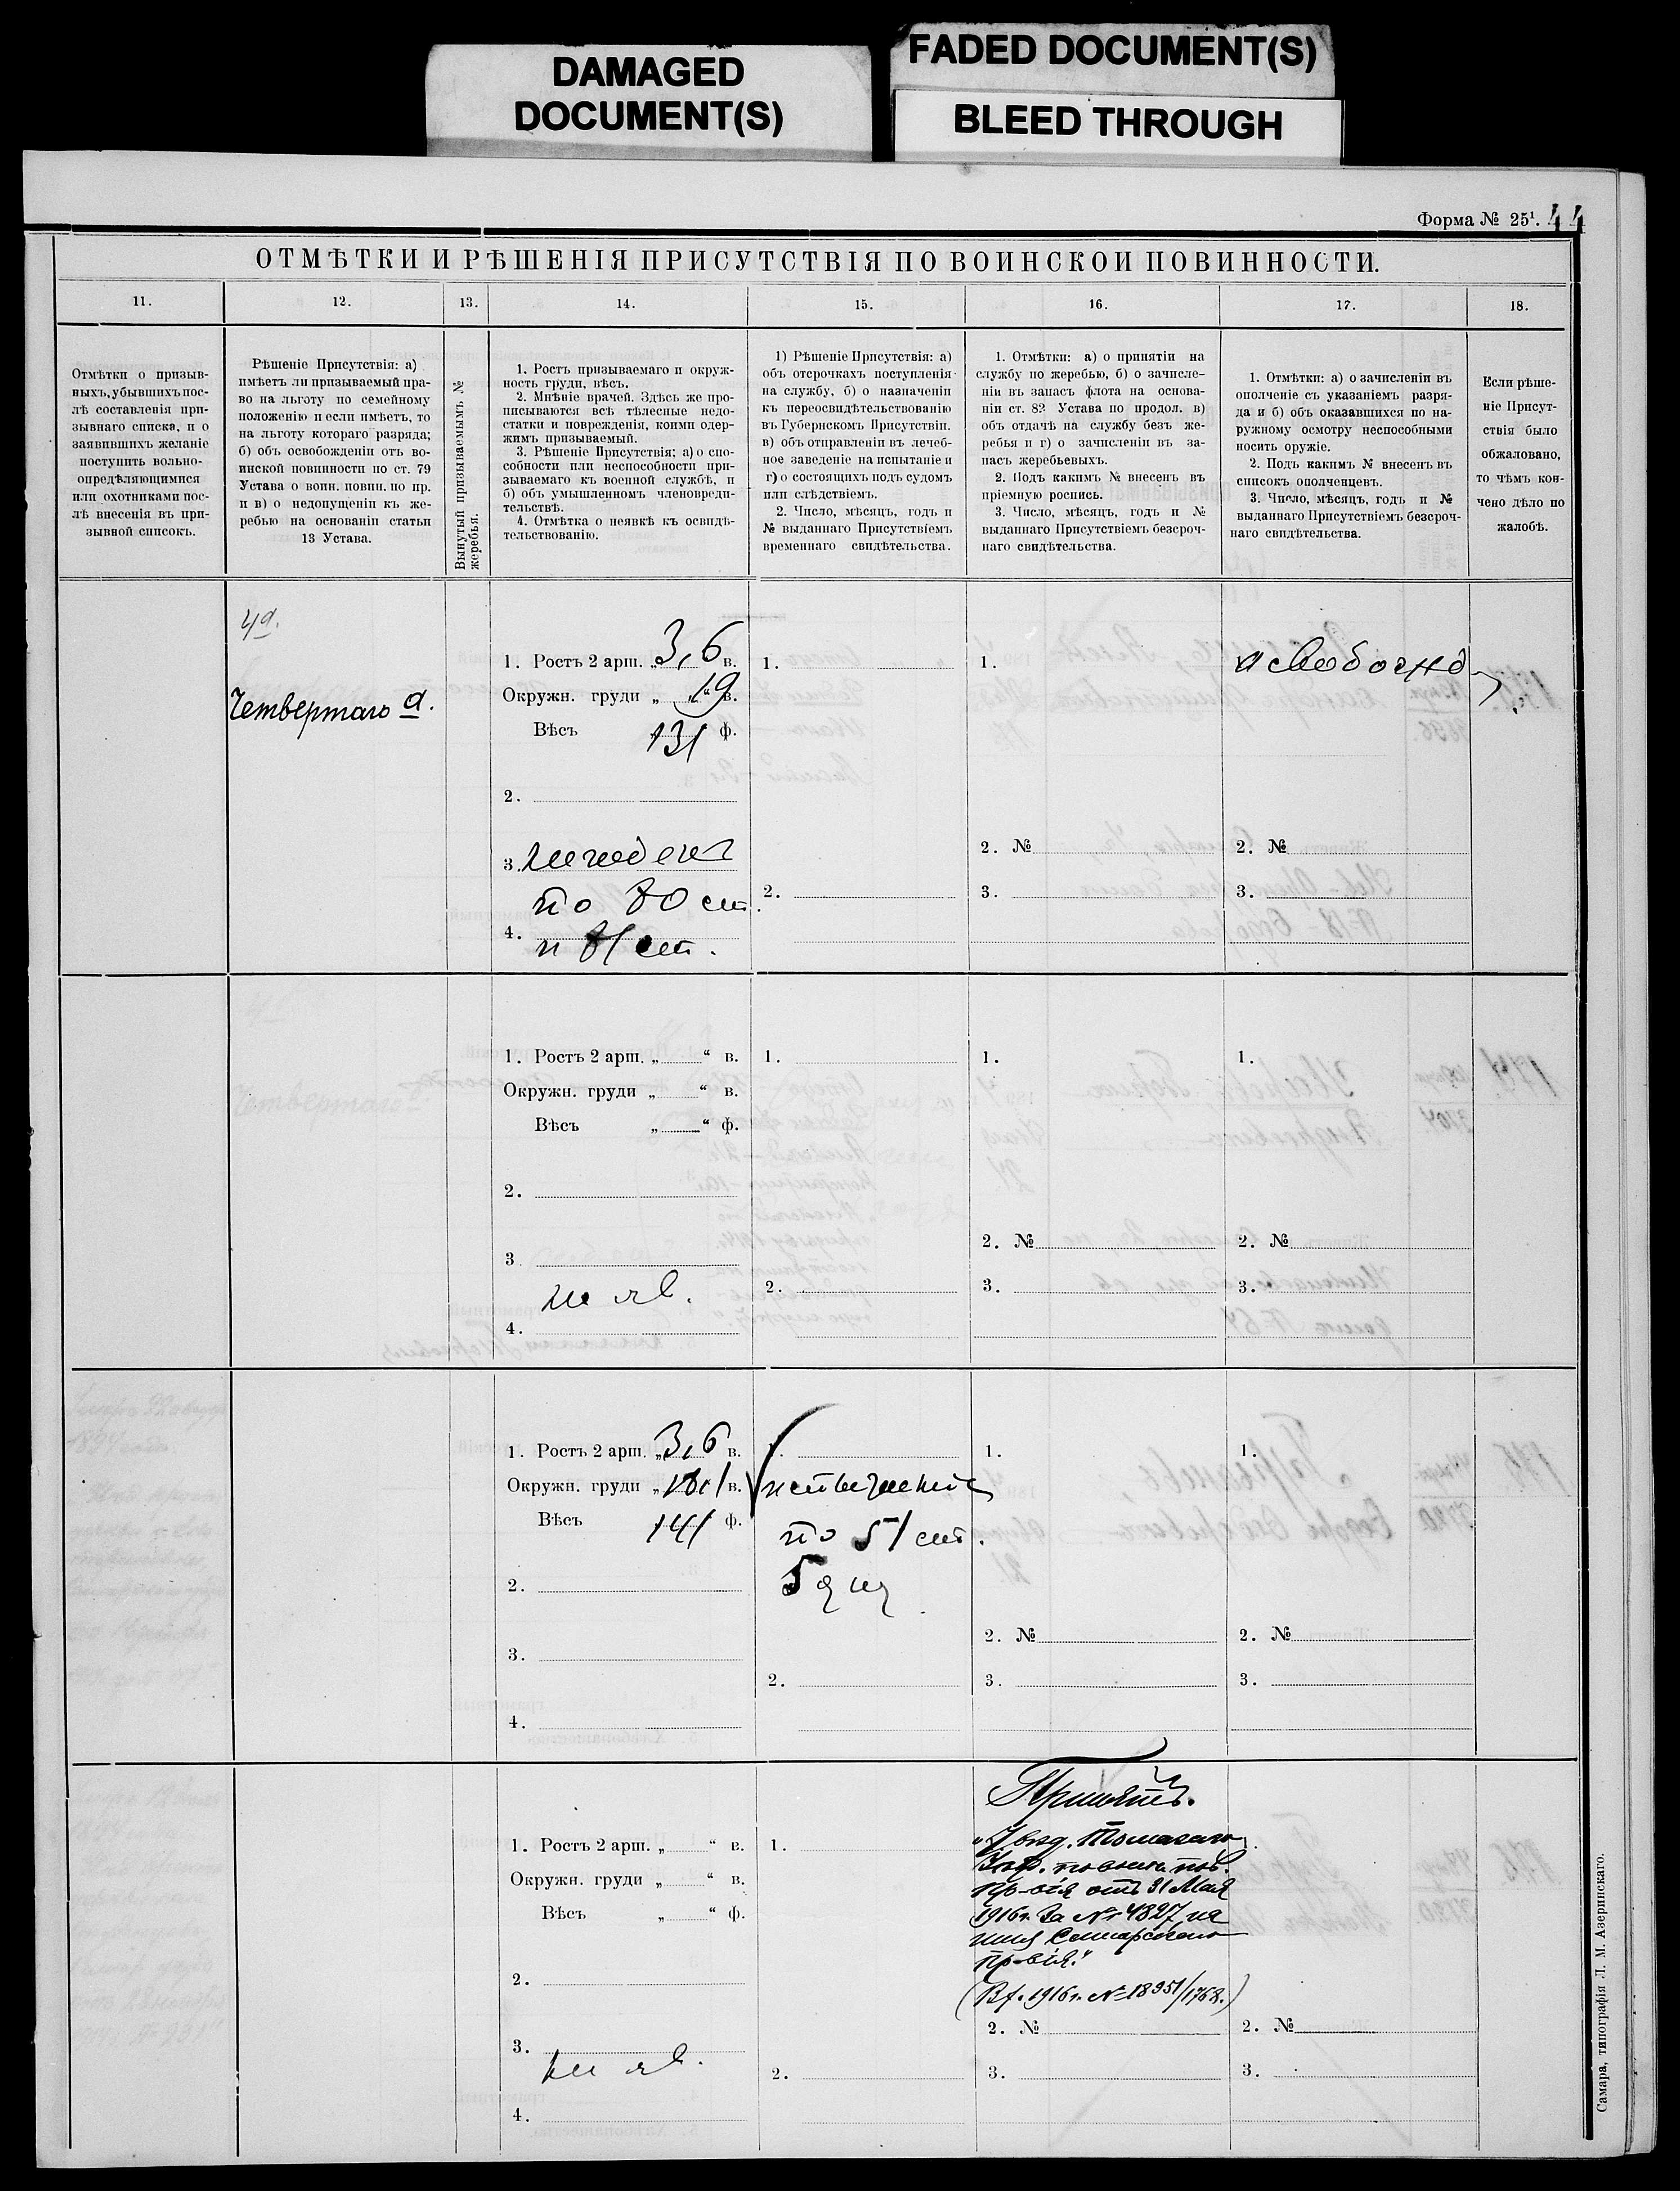 DAMAGED
DOCUMENT(S)
FADED DOCUMENT(S)
BLEED THROUGH
Форма № 25¹. 44
ОТМѢТКИ И РѢШЕНІЯ ПРИСУТСТВІЯ ПО ВОИНСКОЙ ПОВИННОСТИ.
11.
12.
13.
14.
15.
16.
17.
18.
Отмѣтки о призыв-
ныхъ, убывшихъ пос-
лѣ составленія при-
зывнаго списка, и о
заявившихъ желаніе
поступить вольно-
опредѣляющимися
или охотниками пос-
лѣ внесенія въ при-
зывной списокъ.
Рѣшеніе Присутствія: а)
имѣетъ ли призываемый пра-
во на льготу по семейному
положенію и если имѣетъ, то
на льготу котораго разряда;
б) объ освобожденіи отъ во-
инской повинности по ст. 79
Устава о воин. повин. по пр.
и в) о недопущеніи къ же-
ребью на основаніи статьи
13 Устава.
Вынутый призываемымъ №
жеребья.
1. Ростъ призываемаго и окруж-
ность груди, вѣсъ.
2. Мнѣніе врачей. Здѣсь же про-
писываются всѣ тѣлесные недо-
статки и поврежденія, коими одер-
жимъ призываемый.
3. Рѣшеніе Присутствія; а) о спо-
собности или неспособности при-
зываемаго къ военной службѣ, и
б) объ умышленномъ членовреди-
тельствѣ.
4. Отмѣтка о неявкѣ къ освидѣ-
тельствованію.
1) Рѣшеніе Присутствія: а)
объ отсрочкахъ поступленія
на службу, б) о назначеніи
къ переосвидѣтельствованію
въ Губернскомъ Присутствіи.
в) объ отправленіи въ лечеб-
ное заведеніе на испытаніе и
г) о состоящихъ подъ судомъ
или слѣдствіемъ.
2. Число, мѣсяцъ, годъ и
№ выданнаго Присутствіемъ
временнаго свидѣтельства.
1. Отмѣтки: а) о принятіи на
службу по жеребью, б) о зачисле-
ніи въ запасъ флота на основа-
ніи ст. 82 Устава по продол. в)
объ отдачѣ на службу безъ же-
ребья и г) о зачисленіи въ за-
пасъ жеребьевыхъ.
2. Подъ какимъ № внесенъ въ
пріемную роспись.
3. Число, мѣсяцъ, годъ и №
выданнаго Присутствіемъ безсроч-
наго свидѣтельства.
1. Отмѣтки: а) о зачисленіи въ
ополченіе съ указаніемъ разря-
да и б) объ оказавшихся по на-
ружному осмотру неспособными
носить оружіе.
2. Подъ какимъ № внесенъ въ
списокъ ополченцевъ.
3. Число, мѣсяцъ, годъ и №
выданнаго Присутствіемъ безсроч-
наго свидѣтельства.
Если рѣше-
ніе Присут-
ствія было
обжаловано,
то чѣмъ кон-
чено дѣло по
жалобѣ.
4а.
Четвертаго а.
1. Ростъ 2 арш. „3,6 в.
Окружн. груди „ 19 в.
Вѣсъ 131 ф.
2.
3. негоденъ
по 80 ст.
4. и 81 ст.
1.
2.
1.
2. №
3.
освобожд
2. №
3.
1. Ростъ 2 арш. „ “ в.
Окружн. груди „ “ в.
Вѣсъ „ “ ф.
2.
3.
не яв.
4.
1.
2.
1.
2. №
3.
1.
2. №
3.
1. Ростъ 2 арш. „3,6 в.
Окружн. груди „ в.
Вѣсъ 141 ф.
2.
3.
4.
1.
по 51 ст.
2.
1.
2. №
3.
1.
2. №
3.
1. Ростъ 2 арш. „ “ в.
Окружн. груди „ “ в.
Вѣсъ „ “ ф.
2.
3.
не яв.
4.
1.
2.
Принятъ.
по воинск. пов.
Пр-вія отъ 31 Мая
1916 г. за № 4827 на
имя Самарскаго
Пр-вія."
(Вх. 1916 г. № 18951/1768.)
2. №
3.
2. №
3.
Самара, типографія Л. М. Азеринскаго.